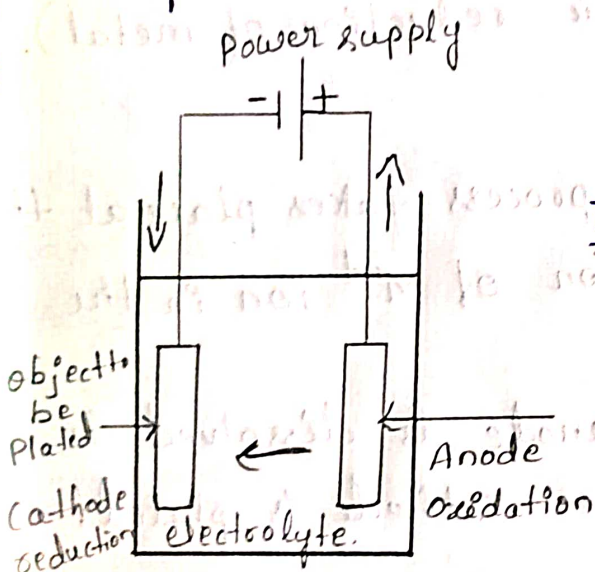 power supply
- +
object to
be
plated
Cathode
reduction
electrolyte.
Anode
oxidation